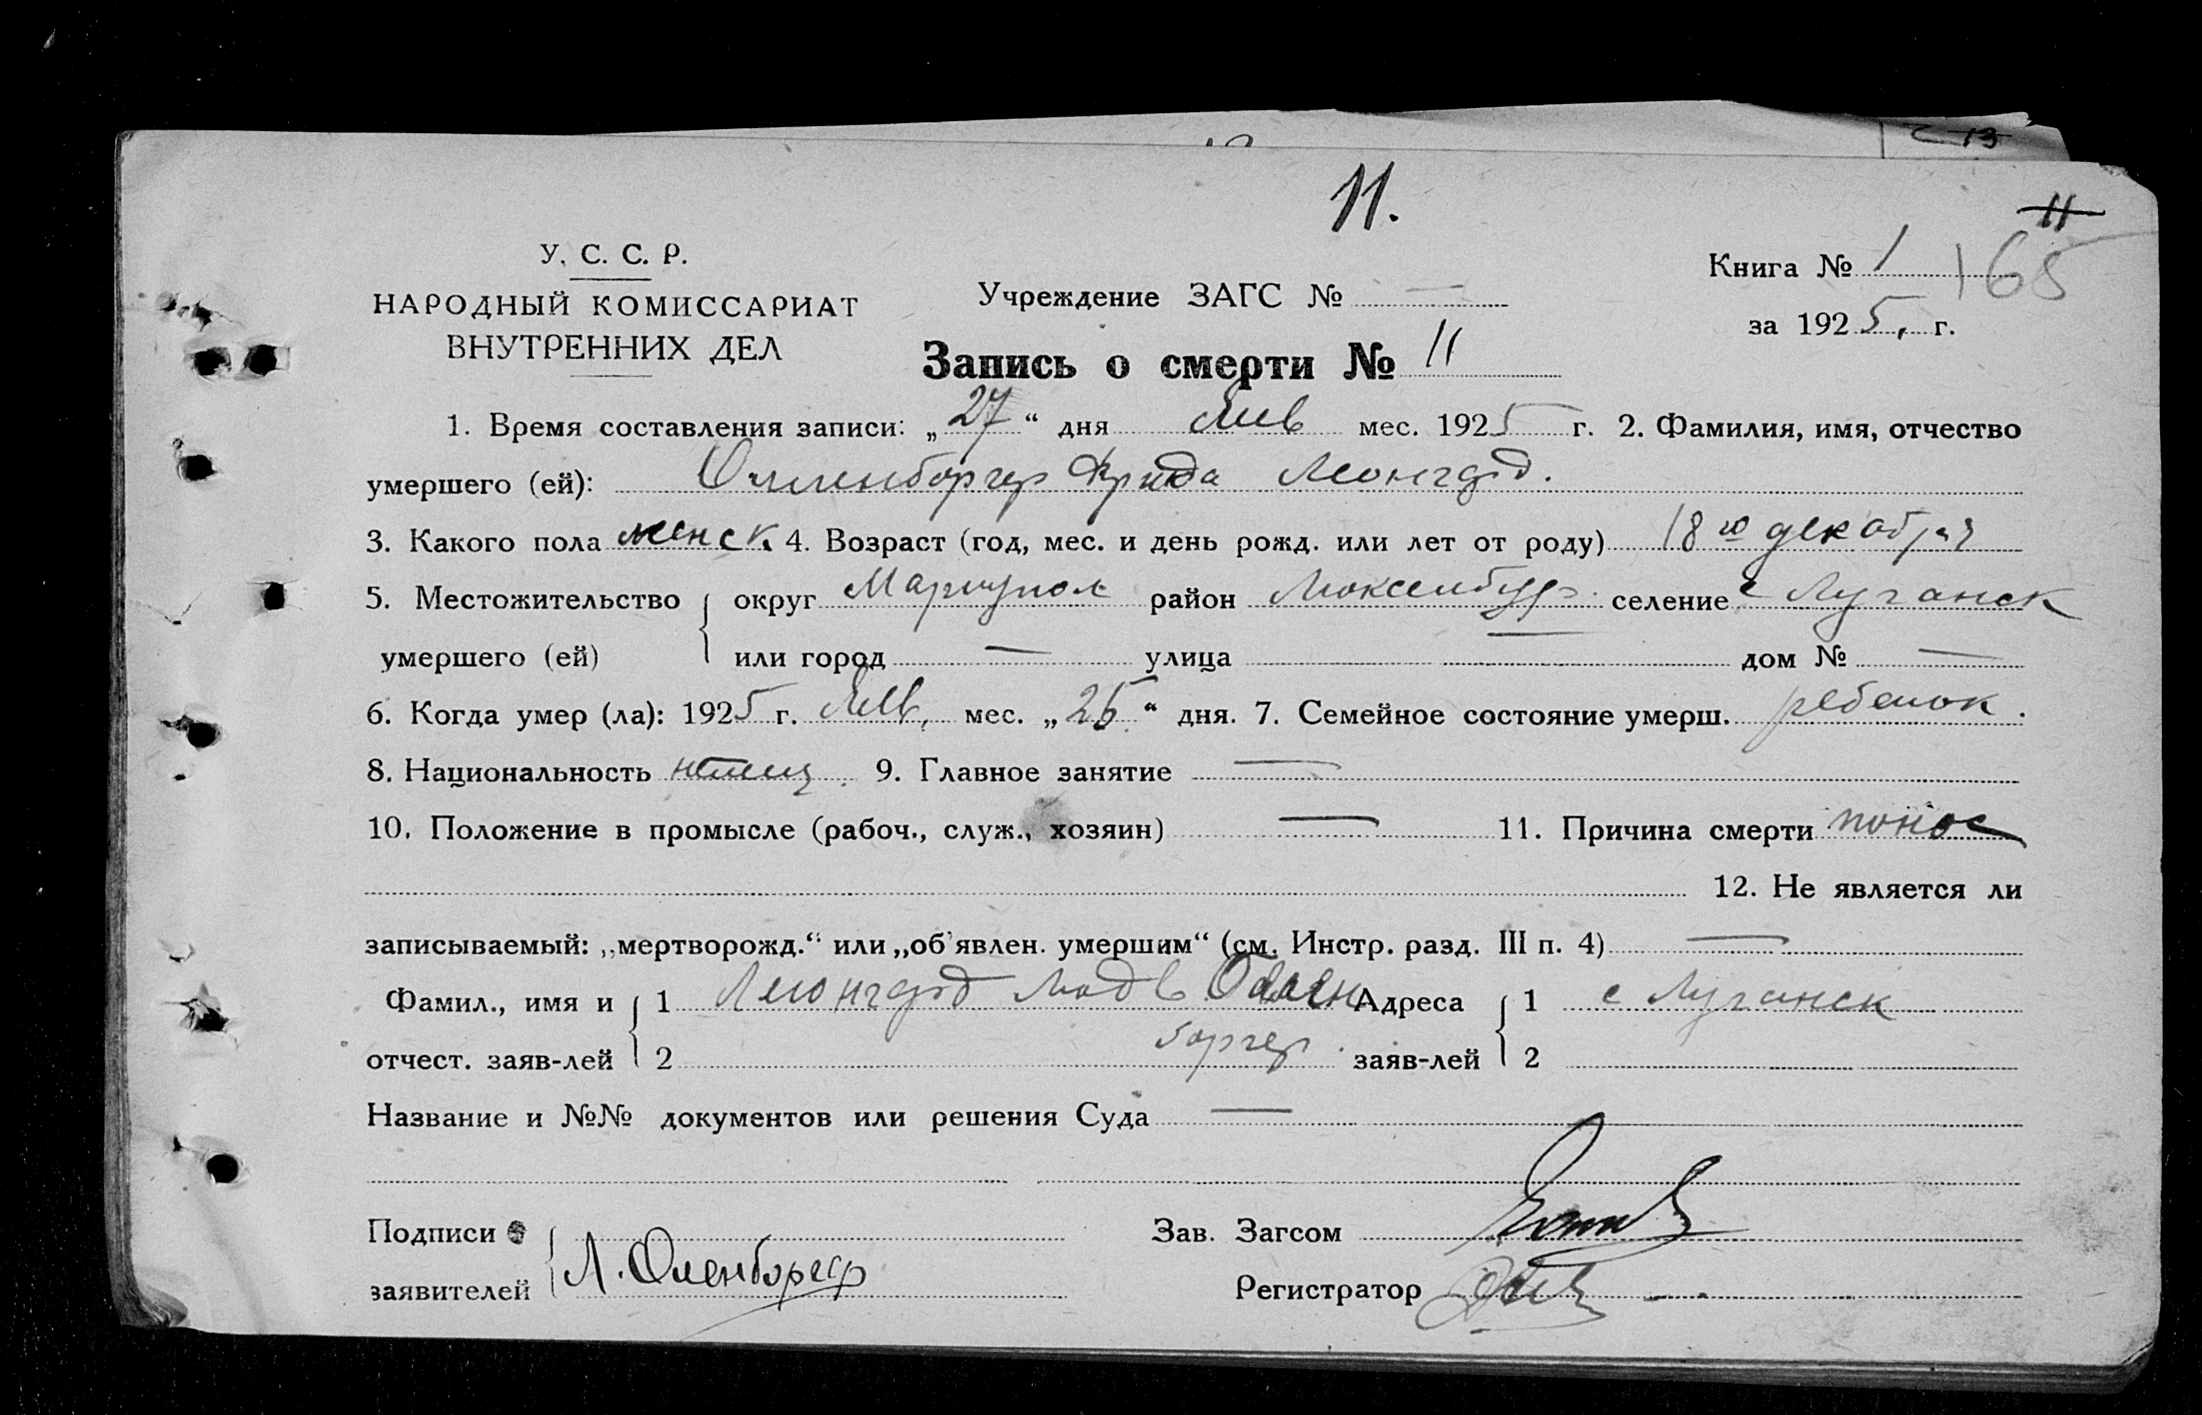 13
11.
11
У. С. С. Р.
НАРОДНЫЙ КОМИССАРИАТ
ВНУТРЕННИХ ДЕЛ
Учреждение ЗАГС № —
Книга № 1 165
за 1925, г.
Запись о смерти № 11
1. Время составления записи: „27“ дня Янв мес. 1925 г. 2. Фамилия, имя, отчество
умершего (ей): Олленборгер Фрида Леонгард.
3. Какого пола женск. 4. Возраст (год, мес. и день рожд. или лет от роду) 18го декабря
5. Местожительство округ Мариупол район Люксембург селение с Луганск
умершего (ей) или город — улица — дом № —
6. Когда умер (ла): 1925 г. Янв, мес. „26“ дня. 7. Семейное состояние умерш. ребенок.
8. Национальность немец. 9. Главное занятие —
10. Положение в промысле (рабоч., служ., хозяин) — 11. Причина смерти понос
12. Не является ли
записываемый: „мертворожд.“ или „об'явлен. умершим“ (см. Инстр. разд. III п. 4) —
Фамил., имя и 1 Леонгард Людв Оллен Адреса 1 с Луганск
отчест. заяв-лей 2 боргер. заяв-лей 2
Название и №№ документов или решения Суда —
Подписи Зав. Загсом
заявителей Л. Оленборгер Регистратор